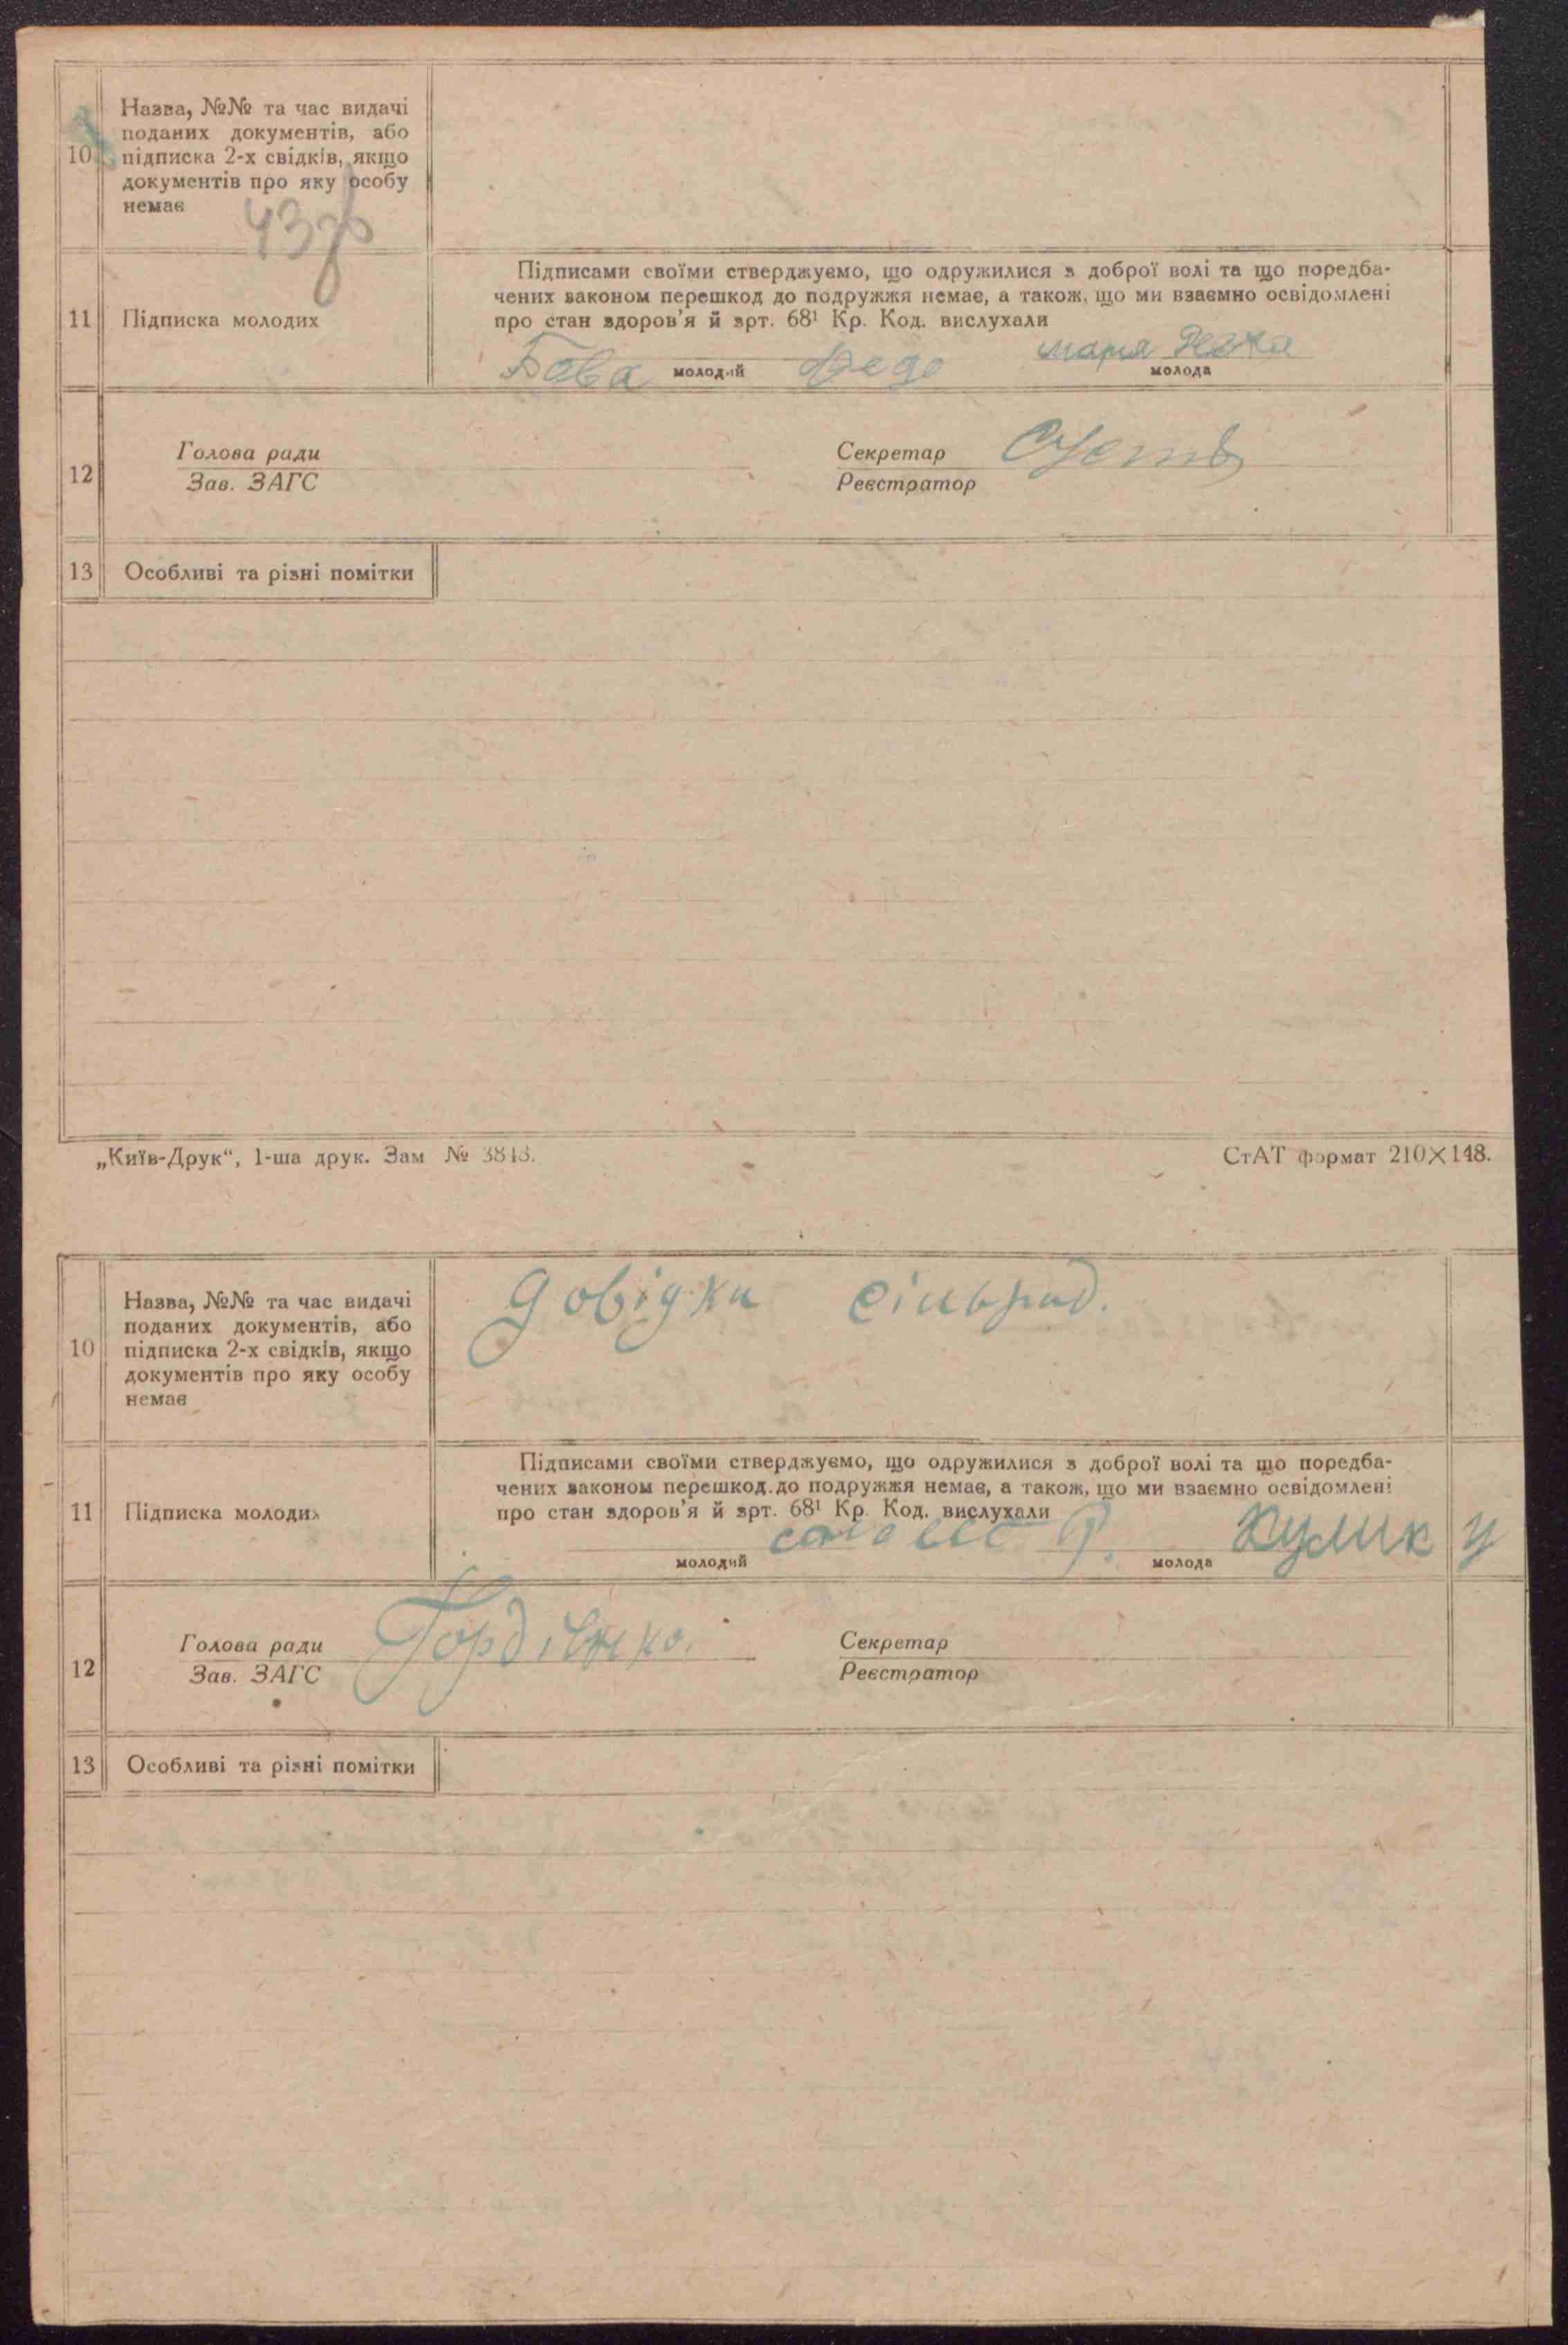 10
Назва, №№ та час видачі
поданих документів, або
підписка 2-х свідків, якщо
документів про яку особу
немає
43зв
11
Підписка молодих
Підписами своїми стверджуємо, що одружилися з доброї волі та що поредба-
чених законом перешкод до подружжя немає, а також, що ми взаємно освідомлені
про стан здоров'я й арт. 68¹ Кр. Код. вислухали
Бава молодий Федо
мария
молода
12
Голова ради
Зав. ЗАГС
Секретар
Реєстратор
13
Особливі та різні помітки
„Київ-Друк“, 1-ша друк. Зам № 3848.
СтАТ формат 210×148.
10
Назва, №№ та час видачі
поданих документів, або
підписка 2-х свідків, якщо
документів про яку особу
немає
Довідки сільрад.
11
Підписка молодих
Підписами своїми стверджуємо, що одружилися з доброї волі та що поредба-
чених законом перешкод до подружжя немає, а також, що ми взаємно освідомлені
про стан здоров'я й арт. 68¹ Кр. Код. вислухали
молодий
молода Кулик У
12
Голова ради Гордієнко.
Зав. ЗАГС
Секретар
Реєстратор
13
Особливі та різні помітки